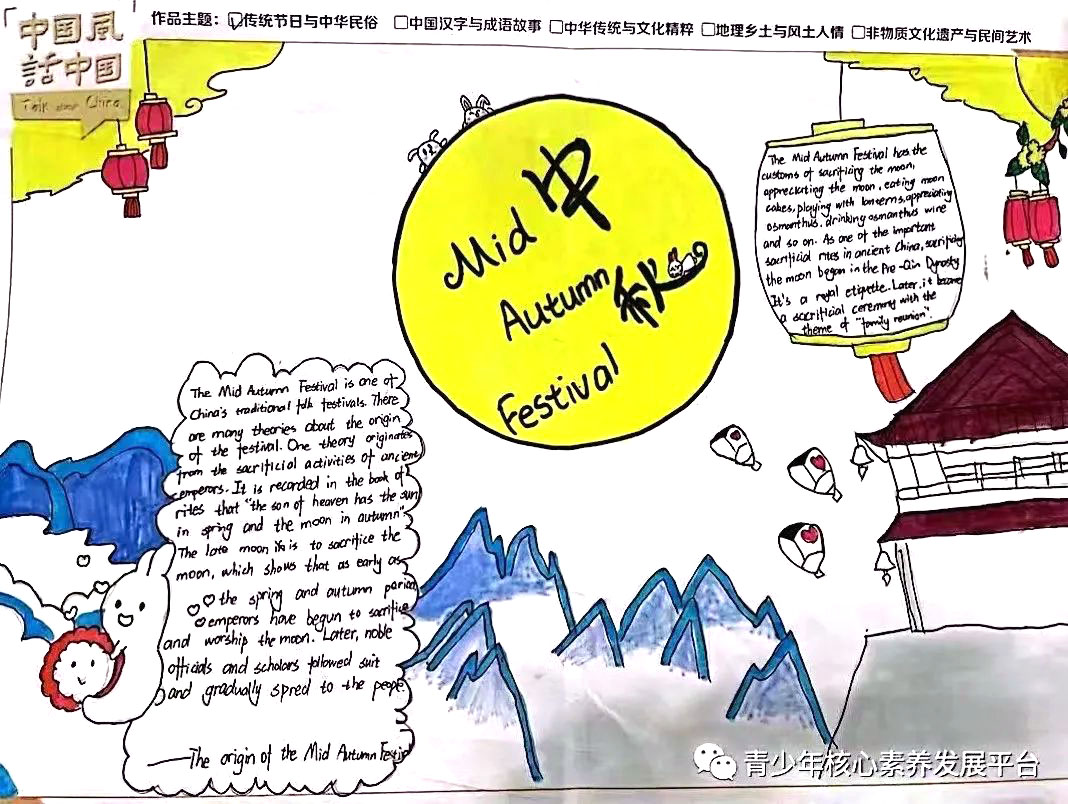 中国風
話中国
Talk about China
作品主题: ☑传统节日与中华民俗 □中国汉字与成语故事 □中华传统与文化精粹 □地理乡土与风土人情 □非物质文化遗产与民间艺术
Mid 中
Autumn 秋
Festival
The Mid Autumn Festival has the
customs of sacrificing the moon,
appreciating the moon, eating moon
cakes, playing with lanterns, appreciating
osmanthus, drinking osmanthus wine
and so on. As one of the important
sacrificial rites in ancient China, sacrificing
the moon began in the Pre-Qin Dynasty
It's a royal etiquette. Later, it became
a sacrificial ceremony with the
theme of "family reunion".
The Mid Autumn Festival is one of
China's traditional folk festivals. There
are many theories about the origin
of the festival. One theory originates
from the sacrificial activities of ancient
emperors. It is recorded in the book of
rites that "the son of heaven has the sun
in spring and the moon in autumn".
The late moon is to sacrifice the
moon, which shows that as early as
the spring and autumn period
emperors have begun to sacrifice
and worship the moon. Later, noble
officials and scholars followed suit
and gradually spred to the people.
——The origin of the Mid Autumn Festiv
青少年核心素养发展平台